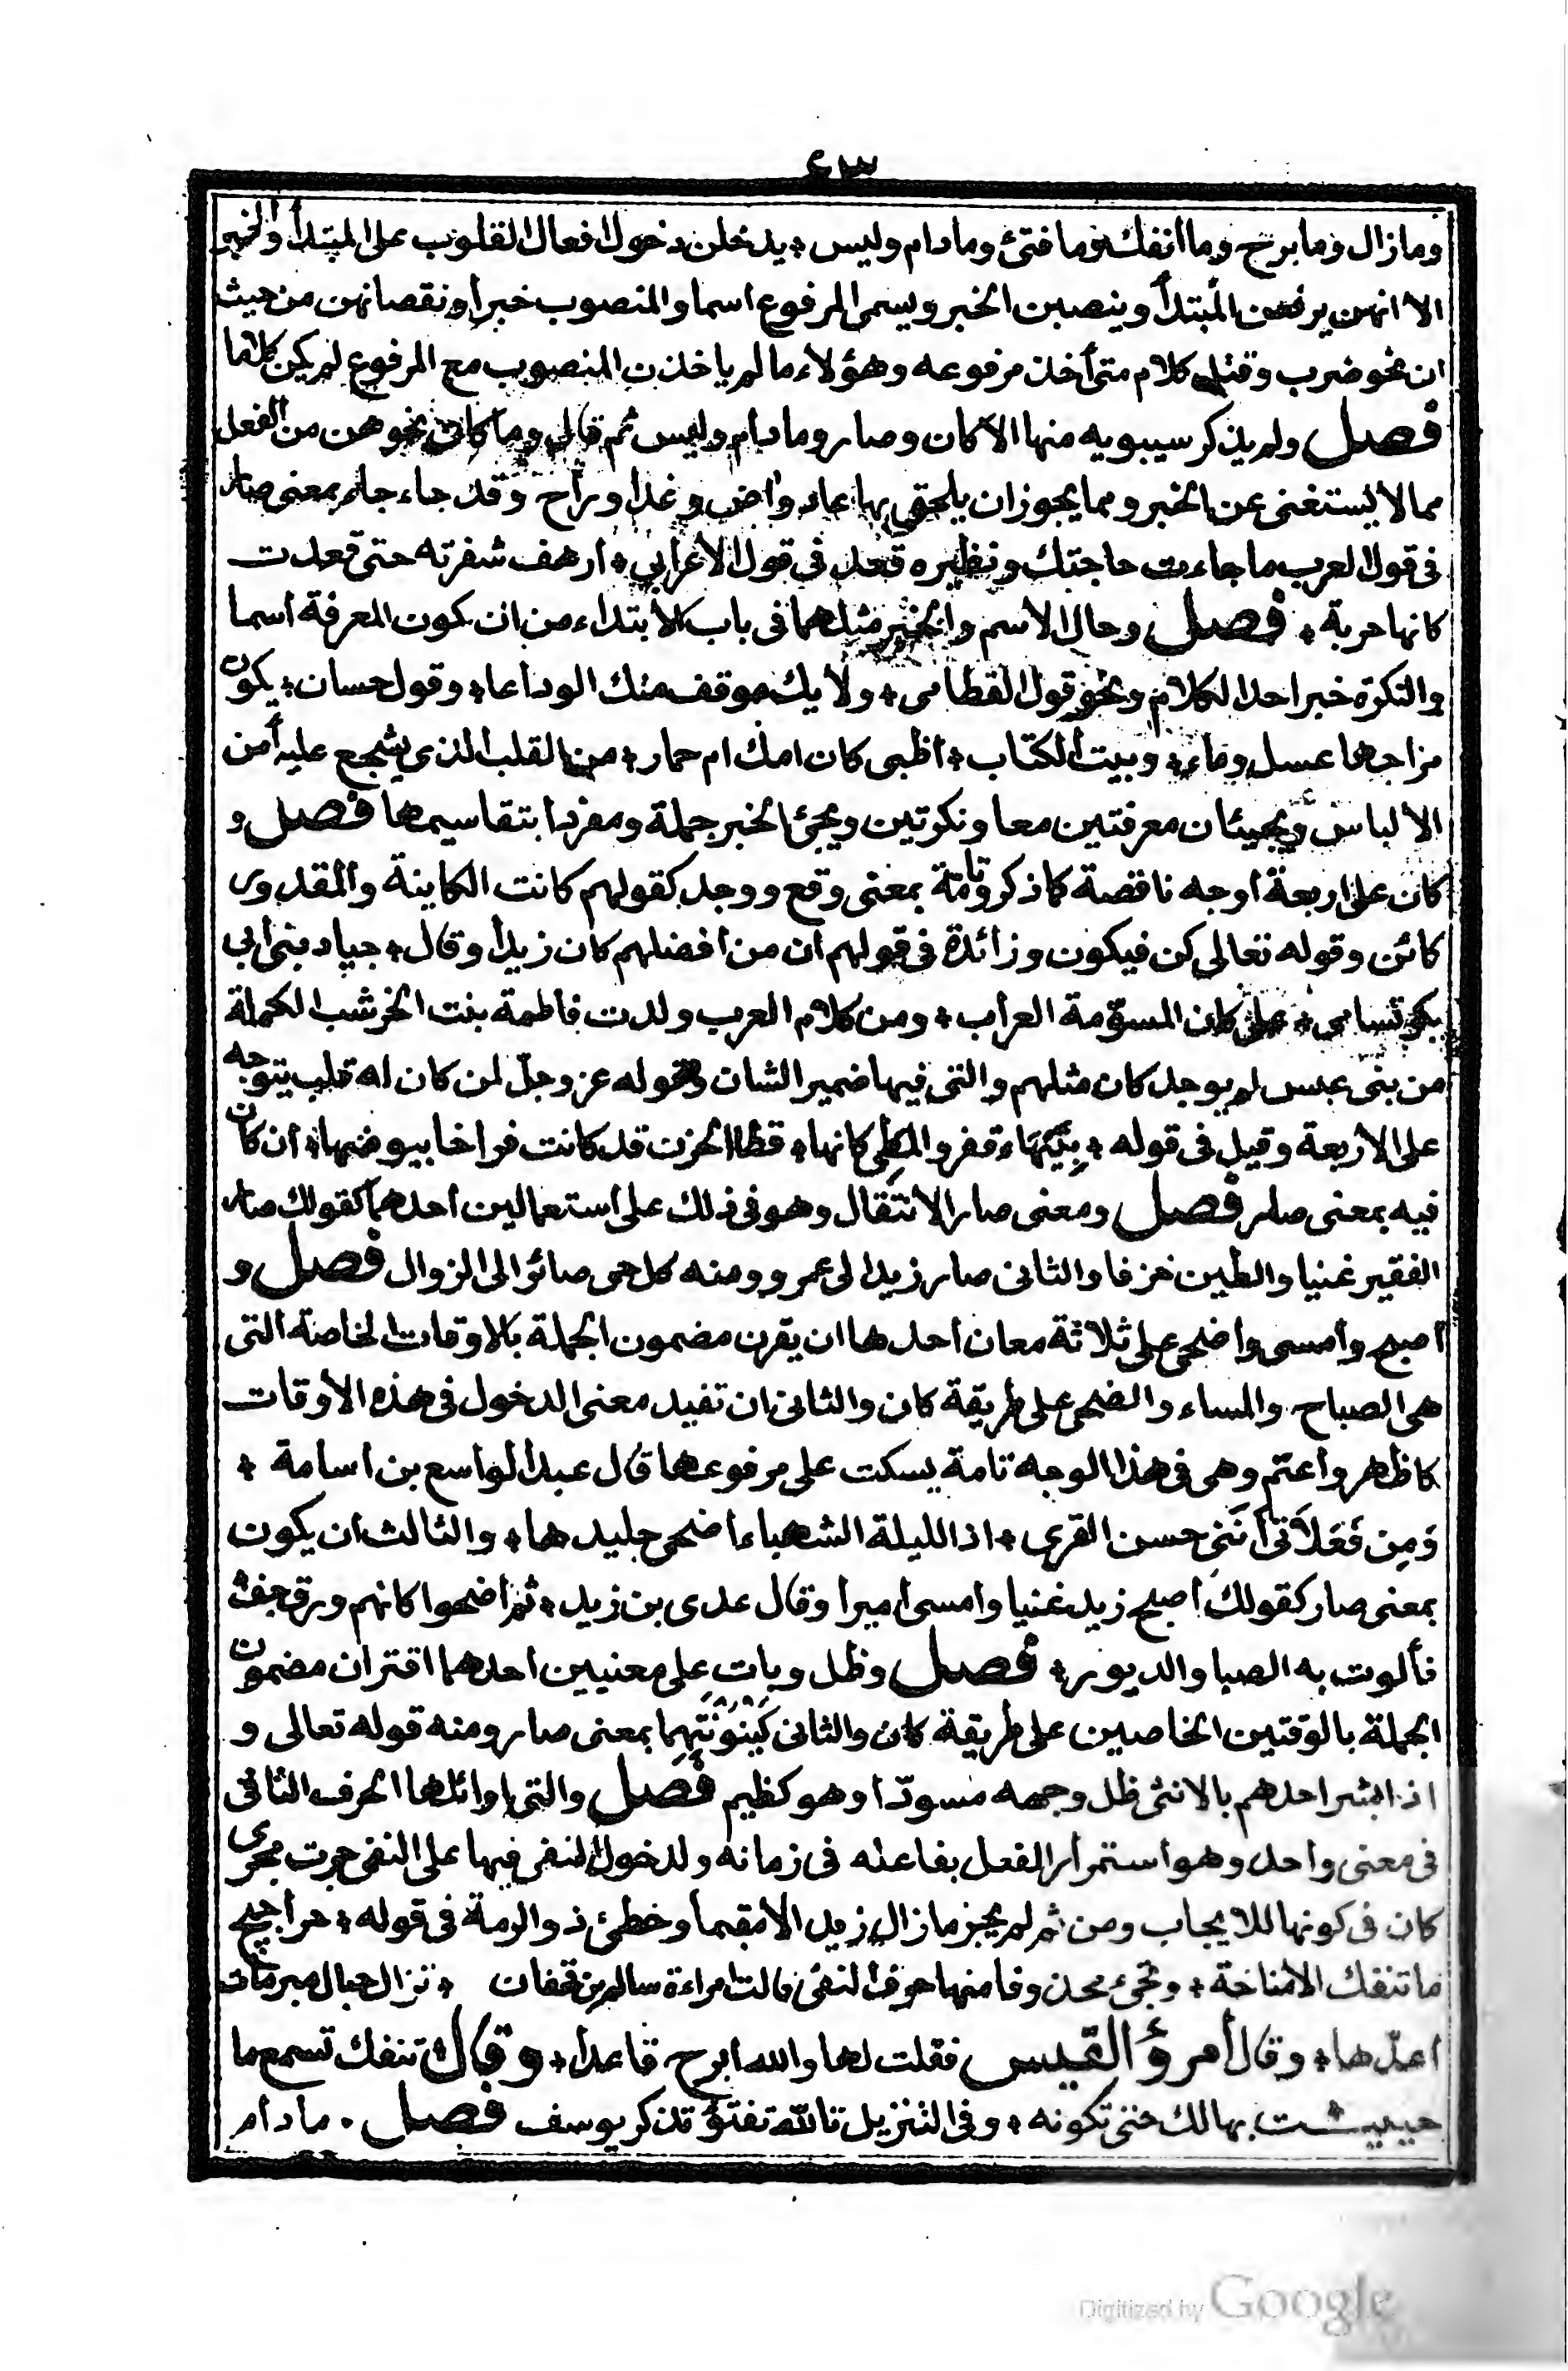 ٤٣
وما زال وما برح وما انفك وما فتئ وما دام وليس ٭ يدخلن دخول افعال القلوب على المبتدأ والخبر
الا انهن يرفعن المبتدأ وينصبن الخبر ويسمى المرفوع اسما والمنصوب خبرا ونقصانهن من حيث
ان نحو ضرب وقتل كلام متى أخذ مرفوعه وهؤلاء ما لم ياخذن المنصوب مع المرفوع لم يكن كلاما
فصل ولم يذكر سيبويه منها الا كان وصار وما دام وليس ثم قال وما كان نحوهن من الفعل
مما لا يستغنى عن الخبر ومما يجوز ان يلحق بها عاد واض وغدا وراح وقد جاء جاء بمعنى صار
فى قول العرب ما جاءت حاجتك ونظيره قعد فى قول الأعرابي ٭ ارهف شفرته حتى قعدت
كانها حربة ٭ فصل وحال الاسم والخبر مثلهما فى باب الابتداء من ان كون المعرفة اسما
والنكرة خبرا حد الكلام ونحو قول القطامى ٭ ولا يك موقف منك الوداعا ٭ وقول حسان ٭ يكون
مزاجها عسل وماء ٭ وبيت الكتاب ٭ اظبى كان امك ام حمار ٭ من القلب الذى يشجع عليه أمن
الالباس ويجيئان معرفتين معا ونكرتين ويجئ الخبر جملة ومفردا بتقاسيمها فصل و
كان على اربعة اوجه ناقصة كما ذكر وتامة بمعنى وقع ووجد كقولهم كانت الكاينة والمقدور
كائن وقوله تعالى كن فيكون وزائدة فى قولهم ان من افضلهم كان زيدا وقال ٭ جياد بنى أبى
بكر تسامى ٭ على كان المسوّمة العراب ٭ ومن كلام العرب ولدت فاطمة بنت الخرشب الكملة
من بنى عبس لم يوجد كان مثلهم والتى فيها ضمير الشان وقوله عز وجلّ لمن كان له قلب يتوجه
على الاربعة وقيل فى قوله ٭ بِتَيْهَاءَ قفر والمطي كانها ٭ قطا الحزن قد كانت فراخا بيوضها ٭ ان كان
فيه بمعنى صار فصل ومعنى صار الانتقال وهو فى ذلك على استعمالين احدهما كقولك صار
الفقير غنيا والطين خزفا والثانى صار زيد الى عمرو ومنه كل حى صائر الى الزوال فصل و
اصبح وأمسى واضحى على ثلاثة معان احدها ان يقرن مضمون الجملة بالاوقات الخاصة التى
هى الصباح والمساء والضحى على طريقة كان والثانى ان تفيد معنى الدخول فى هذه الاوقات
كاظهر وأعتم وهى فى هذا الوجه تامة يسكت على مرفوعها قال عبد الواسع بن اسامة ٭
وَمِن فَعَلَاتى أَنَنى حسن القرى ٭ اذا الليلة الشهباء اضحى جليدها ٭ والثالث ان يكون
بمعنى صار كقولك اصبح زيد غنيا وامسى اميرا وقال عدى بن زيد ٭ ثم اضحوا كانهم ورق جف
فألوت به الصبا والدبور ٭ فصل وظل وبات على معنيين احدهما اقتران مضمون
الجملة بالوقتين الخاصين على طريقة كان والثانى كَيْنُونَتُهما بمعنى صار ومنه قوله تعالى و
اذا بشر احدهم بالانثى ظل وجهه مسودّا وهو كظيم فصل والتى اوائلها الحرف النافى
فى معنى واحد وهو استمرار الفعل بفاعله فى زمانه ولدخول النفى فيها على النفى جرت مجرى
كان فى كونها للايجاب ومن ثم لم يجز ما زال زيد الا مقيما وخطئ ذو الرمة فى قوله ٭ حراجيج
ما تنفك الا مناخة ٭ وتجئ محذوفا منها حرف النفى قالت امراءة سالم بن قحفان ٭ تزال حبال مبرمات
اعدّها ٭ وقال أمرؤ القيس فقلت لها والله ابرح قاعدا ٭ وقال تنفك تسمع ما
حييت بهالك حتى تكونه ٭ وفى التنزيل تالله تفتؤ تذكر يوسف فصل ٠ ما دام
Digitized by Google